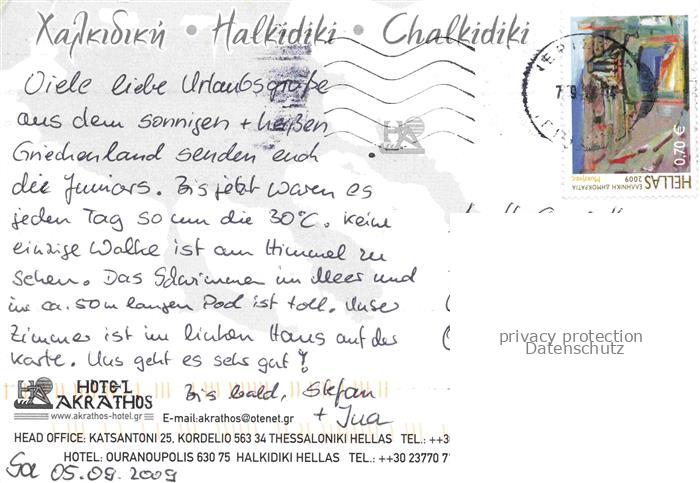 Χαλκιδική • Halkidiki • Chalkidiki
Viele liebe Urlaubsgrüße
aus dem sonnigen + heißen
Griechenland senden euch
die Juniors. Bis jetzt waren es
jeden Tag so um die 30°C. Keine
einzige Wolke ist am Himmel zu
sehen. Das Schwimmen im Meer und
im ca. 50m langen Pool ist toll. Unser
Zimmer ist im linken Haus auf der
Karte. Uns geht es sehr gut!
Bis bald, Stefan
+
HOTEL
AKRATHOS
www.akrathos-hotel.gr
E-mail:akrathos@otenet.gr
HEAD OFFICE: KATSANTONI 25. KORDELIO 563 34 THESSALONIKI HELLAS TEL.: ++3
HOTEL: OURANOUPOLIS 630 75 HALKIDIKI HELLAS TEL.: ++30 23770 7
Sa 05.09.2009
0,70 €
ΕΛΛΗΝΙΚΗ ΔΗΜΟΚΡΑΤΙΑ 2009
HELLAS
privacy protection
Datenschutz